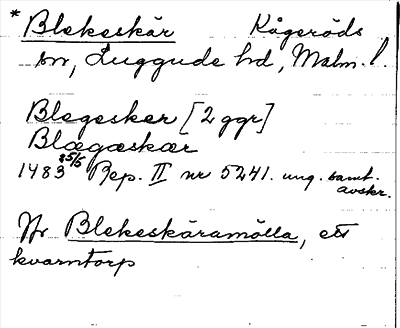 * Blekeskär Kågeröds
sn, Luggude hd, Malm. l.
Blegesker [2 ggr]
Blægæskær
1483 25/5 Rep. II nr 5241. ung. samt. avskr.
Jfr Blekeskäramölla, ett
kvarntorp